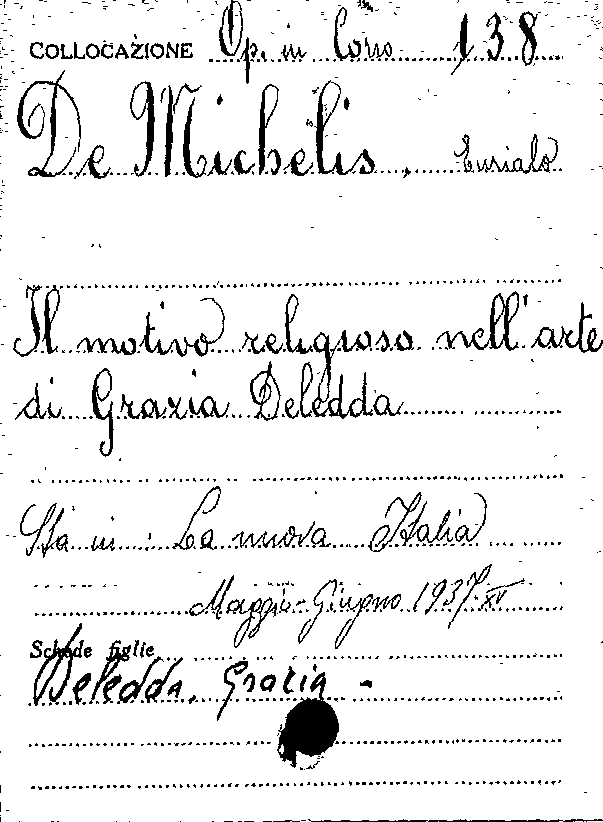 COLLOCAZIONE Op. in Corso 138
De Michelis, Eurialo
Il motivo religioso nell'arte
di Grazia Deledda
Sta in: La nuova Italia
Maggio-Giugno 1937. XV
Schede figlie
Deledda, Grazia -